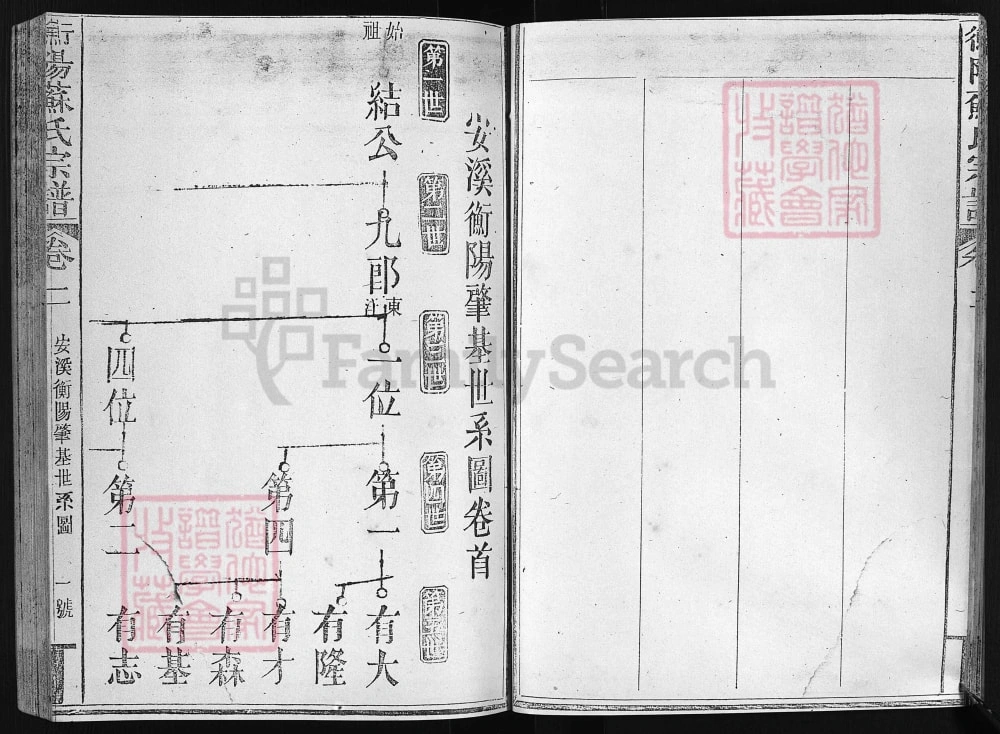 衡陽蘇氏宗譜
卷二
安溪衡陽肇基世系圖卷首
第一世
第二世
第三世
第四世
第五世
始祖
結公
九郎
東汪
一位
第一
有大
有隆
第四
有才
有森
有基
四位
第二
有志
衡陽蘇氏宗譜
卷二
安溪衡陽肇基世系圖
一號
譜學會
FamilySearch